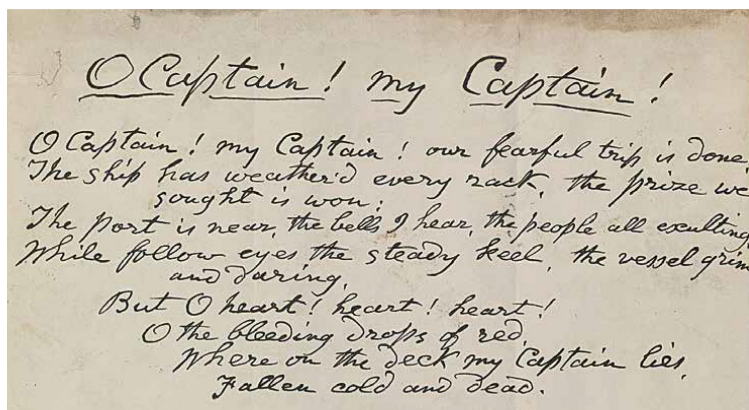 O Captain! my Captain!
O Captain! my Captain! our fearful trip is done,
The ship has weather'd every rack, the prize we
sought is won;
The port is near, the bells I hear, the people all exulting,
While follow eyes the steady keel, the vessel grim
and daring,
But O heart! heart! heart!
O the bleeding drops of red,
Where on the deck my Captain lies,
Fallen cold and dead.